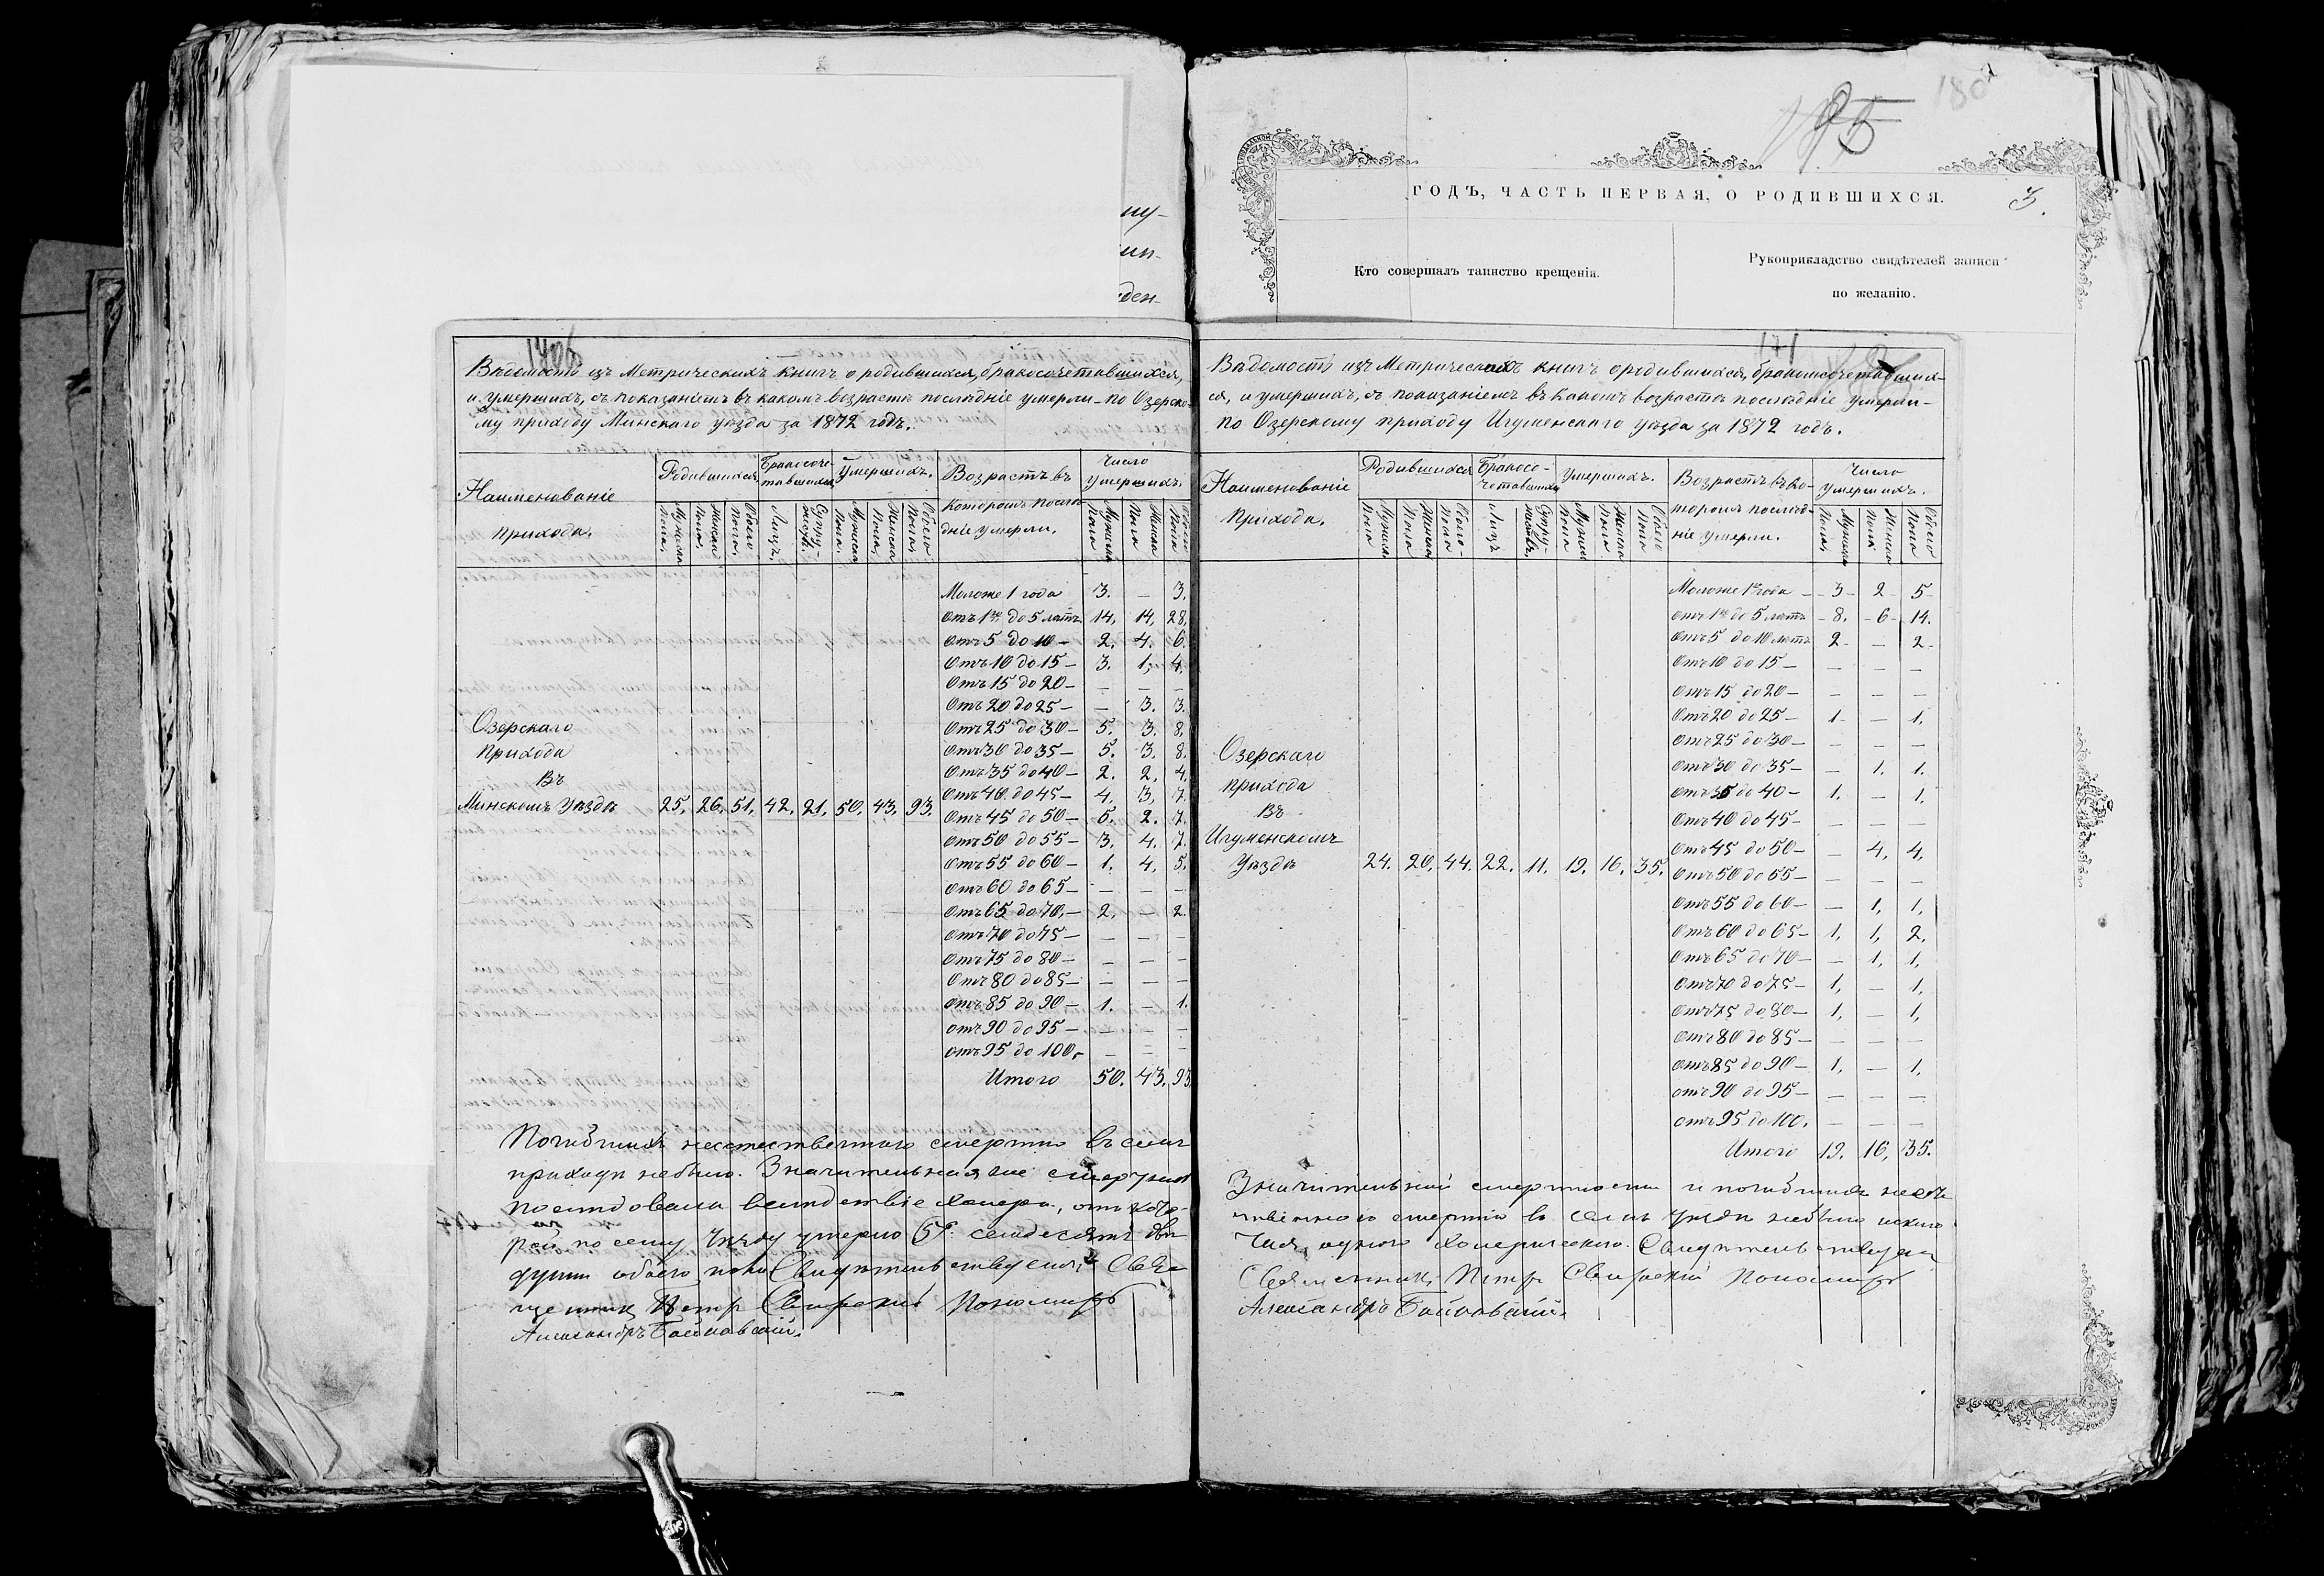 ну-
ден-
1406
Вѣдомость изъ Метрическихъ книгъ о родившихся, бракосочетавшихся,
и умершихъ, съ показаніемъ въ какомъ возрастѣ послѣдніе умерли - по Озерско-
му приходу Минскаго уѣзда за 1872 годъ.
Наименованіе прихода.
Родившихся
Бракосоче-
тавшихся
Умершихъ.
Возрастъ въ
которомъ послѣ-
дніе умерли.
Число
умершихъ.
Мужска пола.
Женска пола.
Обоего пола.
Лицъ.
Супру-
жествъ.
Мужска пола.
Женска пола.
Обоего пола.
Мужска пола
Женска пола
Обоего пола
Моложе 1 года 3. — 3.
Отъ 1го до 5 лѣтъ 14, 14, 28,
Отъ 5 до 10 — 2. 4. 6.
Отъ 10 до 15 — 3. 1, 4.
Отъ 15 до 20 — — — —
Отъ 20 до 25 — — 3. 3.
Отъ 25 до 30 — 5. 3. 8.
Отъ 30 до 35 — 5. 3. 8.
Отъ 35 до 40 — 2. 2. 4.
Отъ 40 до 45 — 4, 3, 7.
Отъ 45 до 50 — 5. 2. 7.
Отъ 50 до 55 — 3. 4. 7.
Отъ 55 до 60 — 1. 4. 5.
Отъ 60 до 65 — — — —
Отъ 65 до 70, — 2. — 2.
Отъ 70 до 75 — — — —
Отъ 75 до 80 — — — —
Отъ 80 до 85 — — — —
отъ 85 до 90 — 1. — 1.
отъ 90 до 95 — — — —
отъ 95 до 100, — — —
Итого 50. 43. 93.
Озерскаго
прихода
Въ
Минскомъ уѣздѣ 25. 26. 51. 42. 21. 50. 43. 93.
Погибшихъ неестественною смертію въ семъ
приходѣ небыло. Значительная же смертность
послѣдовала вслѣдствіе холеры, отъ кото-
рой по сему уѣзду умерло семдесятъ двѣ
души обоего пола Свидѣтельствуемъ: Свя-
щенникъ Петръ Свирскій Пономарь
Александръ
185
180
ГОДЪ, ЧАСТЬ ПЕРВАЯ, О РОДИВШИХСЯ.
3.
Кто совершалъ таинство крещенія.
Рукоприкладство свидѣтелей записи
по желанію.
171
Вѣдомость изъ Метрическихъ книгъ о родившихся, бракосочетавших-
ся, и умершихъ, съ показаніемъ въ какомъ возрастѣ послѣдніе умерли -
по Озерскому приходу Игуменскаго уѣзда за 1872 годъ.
Наименованіе
прихода.
Родившихся
Бракосо-
четавшихся
Умершихъ.
Возрастъ въ ко-
торомъ послѣд-
ніе умерли.
Число
умершихъ.
Мужска пола
Женска пола
Обоего пола
Лицъ
Супру-
жествъ.
Мужска пола
Женска пола
Обоего пола
Мужска пола.
Женска пола
Обоего пола
Моложе 1го года — 3 — 2 — 5
отъ 1го до 5 лѣтъ — 8. — 6 — 14.
Отъ 5 до 10 лѣтъ 2 — — 2
Отъ 10 до 15 — — — —
Отъ 15 до 20 — — — —
Отъ 20 до 25 — 1. — 1.
Отъ 25 до 30 — — — —
Отъ 30 до 35 — — 1. 1.
Отъ 35 до 40 — 1. — 1.
Отъ 40 до 45 — — — —
Отъ 45 до 50 — — 4, 4,
Отъ 50 до 55 — — — —
Отъ 55 до 60 — — 1, 1,
Отъ 60 до 65 — 1, 1, 2.
Отъ 65 до 70 — — 1, 1,
Отъ 70 до 75 — 1, — 1,
Отъ 75 до 80 — 1, — 1,
Отъ 80 до 85 — — — —
Отъ 85 до 90 — 1, — 1,
отъ 90 до 95 — — — —
отъ 95 до 100. — — —
Итого 19. 16, 35.
Озерскаго
прихода
Въ
Игуменскомъ
Уѣздѣ 24. 20. 44. 22. 11. 19. 16. 35.
Значительной смертности и погибшихъ неесте-
ственною смертію въ семъ уѣздѣ небыло исклю-
чая одного холерическаго. Свидѣтельствуемъ
Священникъ Петръ Свирскій Пономарь
Александръ